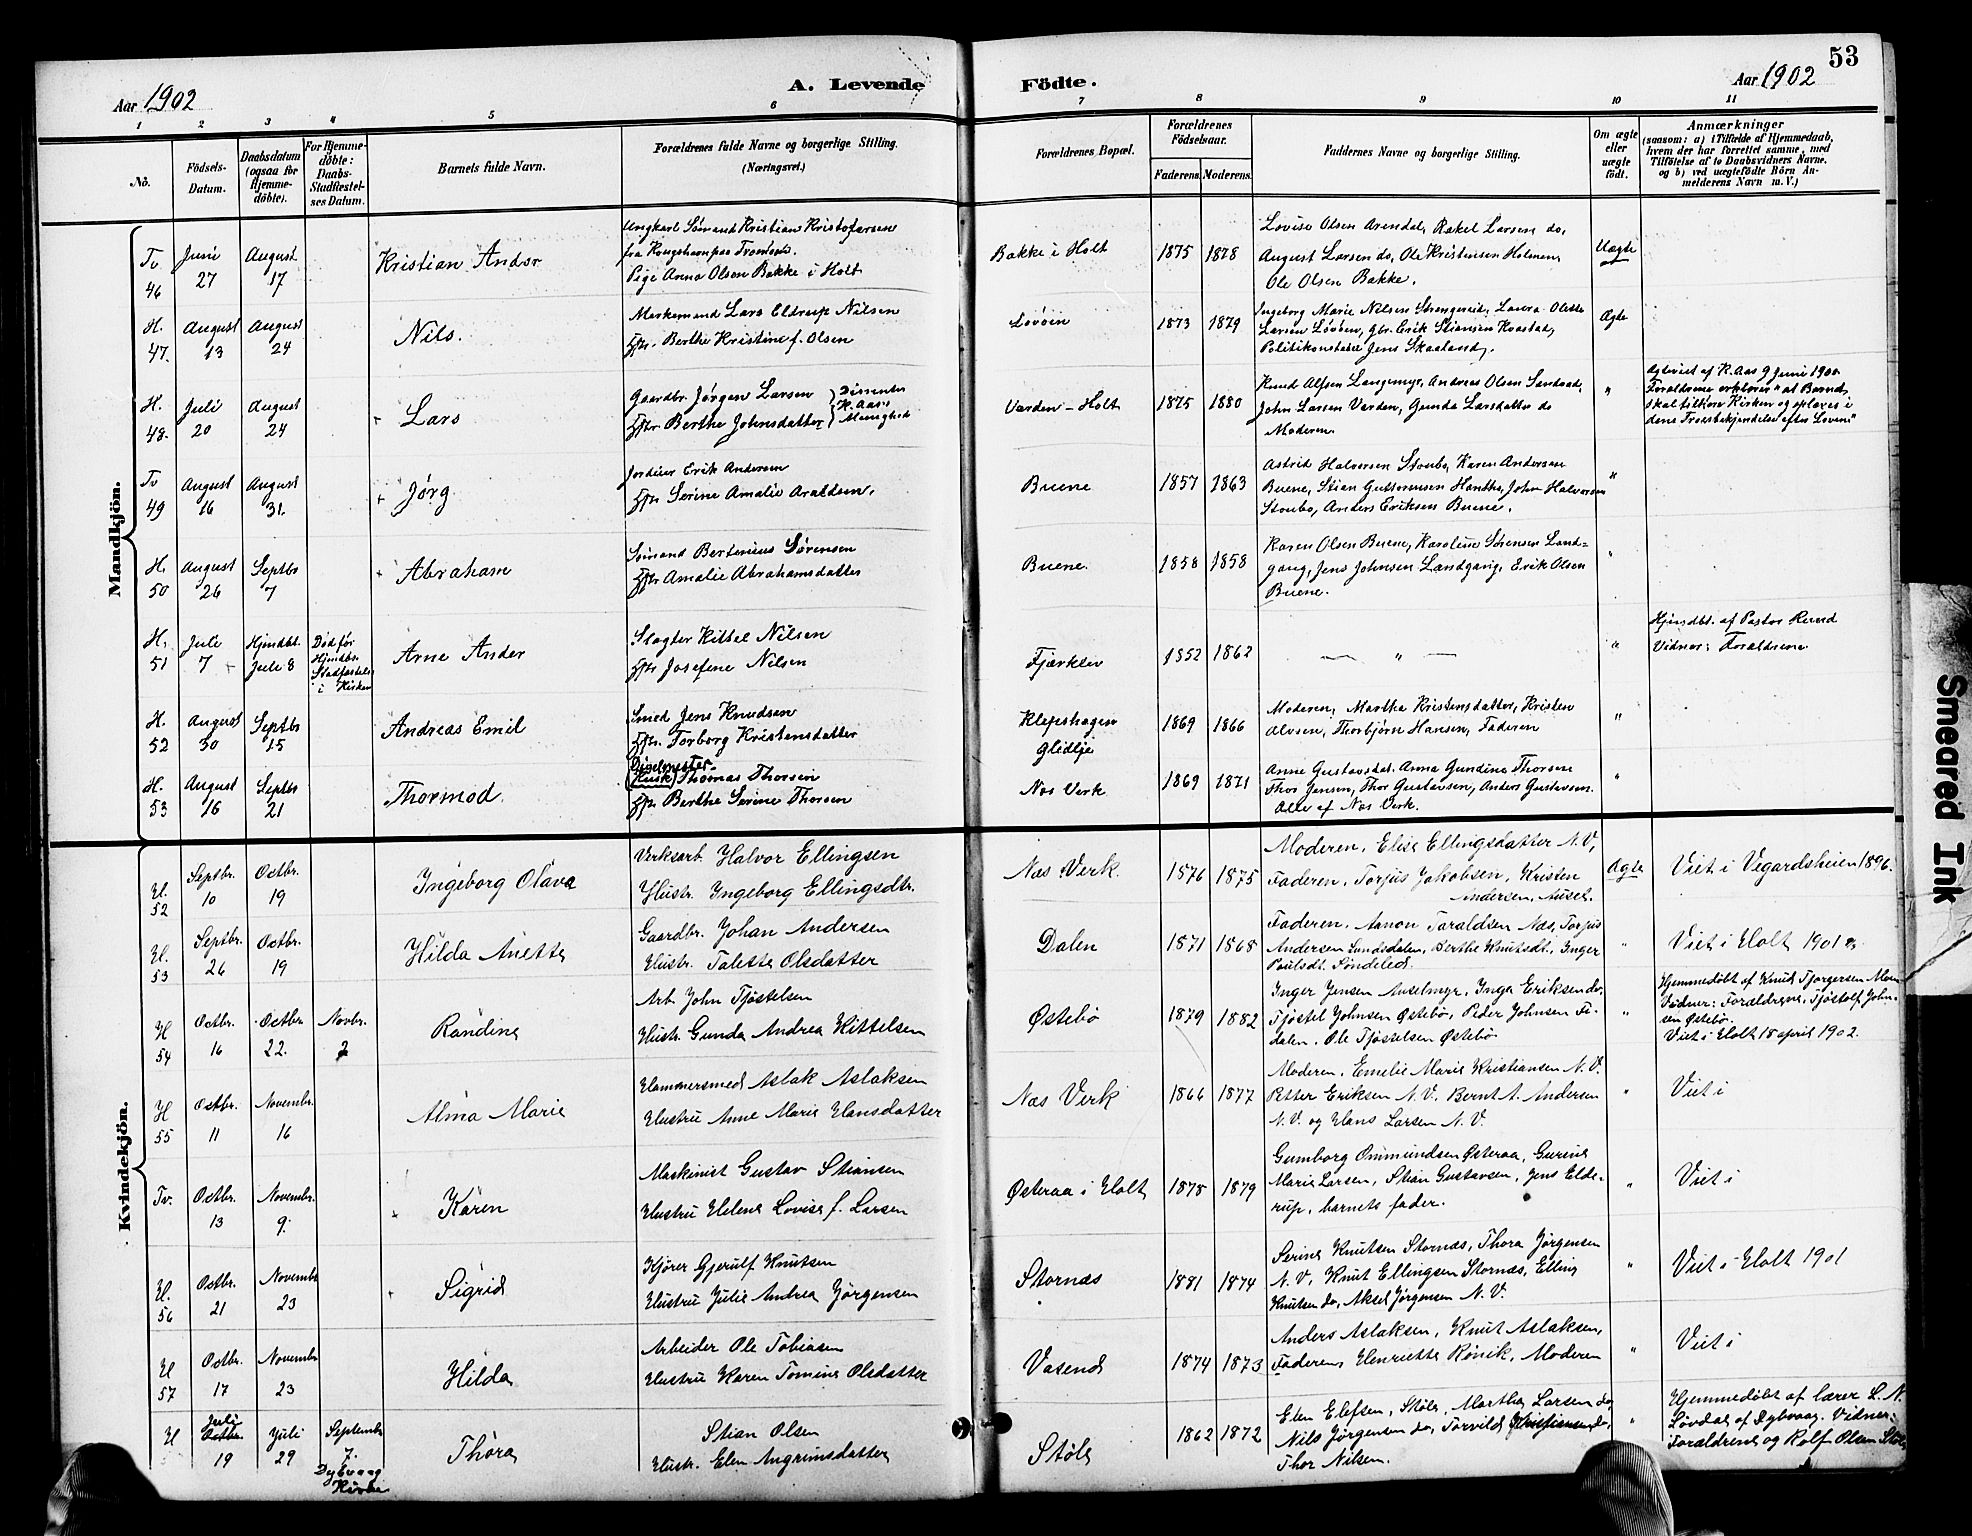 53
Aar 1902
A. Levende Födte.
Aar 1902
1 2 3 4 5 6 7 8 9 10 11
No.
Födsels-
Datum.
Daabsdatum
(ogsaa for
Hjemme-
döbte).
For Hjemme-
döbte:
Daabs-
Stadfæstel-
ses Datum.
Barnets fulde Navn.
Forældrenes fulde Navne og borgerlige Stilling.
(Næringsvei.)
Forældrenes Bopæl.
Forældrenes
Födselsaar.
Faderens. Moderens.
Faddernes Navne og borgerlige Stilling.
Om ægte
eller
uægte
födt.
Anmærkninger
(saasom: a) i Tilfælde af Hjemmedaab,
hvem der har forrettet samme, med
Tilföielse af to Daabsvidners Navne.
og b) ved uægtefödte Börn An-
melderens Navn m. V.)
Mandkjön.
Tv
46
Juni
27
August
17
Kristian Ander
Ungkarl Sømand Kristian Kristofersen
fra Kongshavn pas Tromøen.
Pige Anna Olsen Bakke i Holt
Bakke i Holt
1875 1878
Lovise Olsen Arendal, Rakel Larsen do,
August Larsen do, Ole Kristensen Holmen,
Ole Olsen Bakke.
Uægte
H.
47.
August
13
August
24
Nils.
Markemand Lars Eldrup Nilsen
Hstr. Berthe Kristine f. Olsen
Lövöin
1873 1879
Ingeborg Marie Nilsen Strengereid, Laura Olette
Larsen Lövöen, gbr. Erik Stiansen Kvastad,
Politikonstabel Jens Skaaland,
Ægte
H.
48.
Juli
20
August
24
Lars
Gaardbr. Jörgen Larsen
Hstr Berthe Johnsdatter
Dissenter
K. Aas's
Menighed
Varden - Holt
1875 1880
Knud Alfsen Langemyr, Andreas Olsen Sandaas,
John Larsen Varden, Gunda Larsdatter do
Moderen.
"
Egteviet af K. Aas 9 Juni 1900
Forældrene erklærer "at Barnet
skal tilhøre Kirken og opløres i
dens Troesbekjendelse efter Loven"
Tv
49
August
16
August
31.
Jörg
Jordeier Erik Andersen
Hstr Serine Amalie Araldsen.
Buene
1857 1863
Astrid Halvorsen Stoubo, Karen Andersen
Buene, Stian Guttormsen Hantho, John Halvorsen
Stoubo, Anders Eriksen Buene.
"
H.
50
August
26
Septbr
7
Abraham
Sømand Bertinius Sörensen
Hstr Amalie Abrahamsdatter
Buene.
1858 1858
Karen Olsen Buene, Karoline Sørensen Land=
gang, Jens Johnsen Landgang, Erik Olsen
Buene.
"
H.
51
Juli
7
Hjmdbt.
Jule 8
Död för
Hjmdbs.
Stadfæstelse
i Kirken
Arne Ander
Slagter Kittel Nilsen
Hstr Josefine Nilsen
Fjærkleiv
1852 1862
— " —
"
Hjmdbt. af Pastor Rund
Vidner: Forældrene
H.
52
August
30
Septbr
15
Andreas Emil
Smed Jens Knudsen
Hstr. Torborg Kristensdatter
Klepshagen
Glidlje
1869 1866
Moderen, Martha Kristensdatter, Kristen
Alvsen, Thorbjörn Hansen, Faderen
"
H.
53
August
16
Septbr
21
Thormod
Thomas Thorsen
Hstr. Berthe Serine Thorsen
Næs Verk
1869 1871
Anne Gustavsdat. Anna Gundine Thorsen
Thor Jensen, Thor Gustavsen, Anders Gustavsen.
Alle af Næs Verk.
"
Kvindekjön.
H.
52
Septbr.
10
Octbr.
19
Ingeborg Olava
Verksarb. Halvor Ellingsen
Hustr. Ingeborg Ellingsdtr.
Næs Verk
1876 1875
Moderen, Elise Ellingsdatter N.V,
Faderen, Torjus Jakobsen, Kristen
Andersen, Ausel.
Ægte
Viet i Vegardsheien 1896.
H.
53
Septbr.
26
Octbr.
19
Hilda Anette
Gaardbr. Johan Andersen
Hustr. Talette Olsdatter
Dalen
1871 1868
Faderen, Aanon Taraldsen Næs, Torjus
Andersen Sundsdalen, Berthe Knutsdt, Inger
Poulsdt. Söndeled.
"
Viet i Holt 1901
H
54
Octbr.
16
Octbr.
22.
Novbr.
2
Randine
Arb John Tjöstelsen
Hustr. Gunda Andrea Kittelsen
Østebö
1879 1882
Inger Jensen Anselmyr, Inga Eriksen do,
Tjöstel Johnsen Østebö, Peder Johnsen Fi-
dalen, Ole Tjöstelsen Østebö
"
Hjemmedöbt af Knud Tjorgersen Moen
Vidner: Forældrene, Tjöstolf John-
sen Østebö.
Viet i Holt 18 april 1902.
H
55
Octbr.
11
Novembr.
16
Alma Marie
Hammersmed Aslak Aslaksen
Hustru Anne Marie Hansdatter
Næs Verk
1866 1877
Moderen, Emelie Marie Kristiansen N.V.
Petter Eriksen N.V. Bernt A. Andersen
N.V. og Hans Larsen N.V.
"
Viet i
Tv.
Octbr.
13
Novembr.
9.
Karen
Maskinist Gustav Stiansen
Hustru Helene Lovise f. Larsen
Østeraa i Holt
1878 1879
Gumborg Ommundsen Østeraa, Gurine
Marie Larsen, Stian Gustavsen, Jens Elde-
rup, barnets fader.
"
Viet i
H.
56
Octbr.
21
Novembr
23
Sigrid
Kjörer Gjerulf Knutsen
Hustru Julie Andrea Jörgensen
Stornæs
1881 1874
Serine Knutsen Stornæs, Thora Jörgensen
N.V, Knut Ellingsen Stornæs, Elling
Knutsen do, Aksel Jörgensen N.V.
"
Viet i Holt 1901
H
57
Octbr.
17
Novembr
23
Hilda
Arbeider Ole Tobiasen
Hustru Karen Tomine Olsdatter
Vasend
1874 1873
Anders Aslaksen, Knut Aslaksen,
Faderen, Henriette Rönik, Moderen
"
Viet i
H
Juli
Octbr.
19
Juli
29
Septembr
7.
Dybvaag
Kirke
Thora
Stian Olsen
Hustr. Elen Angrimsdatter
Støle
1862 1872
Elen Elefsen, Støle, Marthe Larsen do
Nils Jörgensen do, Torvild Christiansen do,
Thor Nilsen.
"
Hjemmedöbt af lærer L. N.
Løvdal af Dybvaag. Vidner:
Forældrene og Rolf Olsen Støle
Smeared Ink